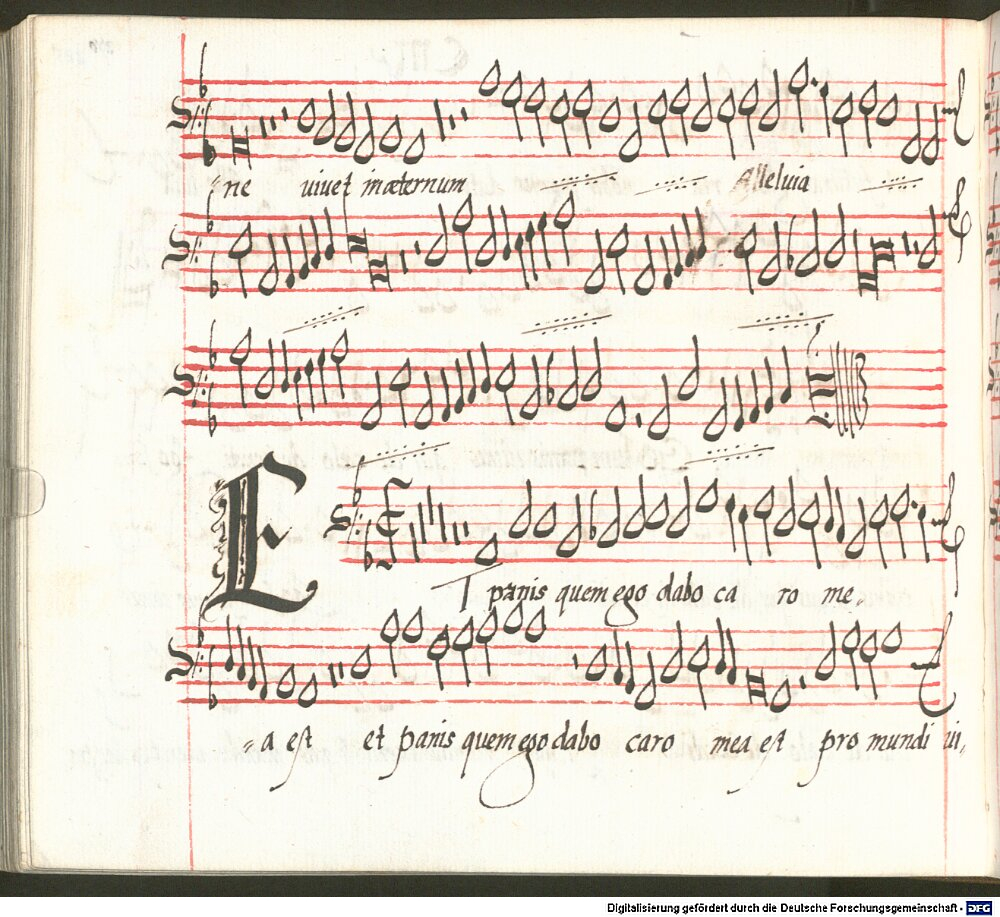 ne uiuet in æternum Alleluia
ET panis quem ego dabo ca ro me,
a est et panis quem ego dabo caro mea est pro mundi ui,
Digitalisierung gefördert durch die Deutsche Forschungsgemeinschaft - DFG